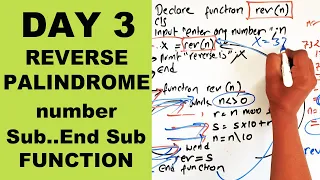 DAY 3
REVERSE
PALINDROME
number
Sub..End Sub
FUNCTION
Declare function rev(n)
cls
input "enter any number"; n
X = rev(n)
print "reverse is"; X
end
function rev(n)
while n<>0
r = n mod
S = S×10+r
n = n\10
wend
rev = S